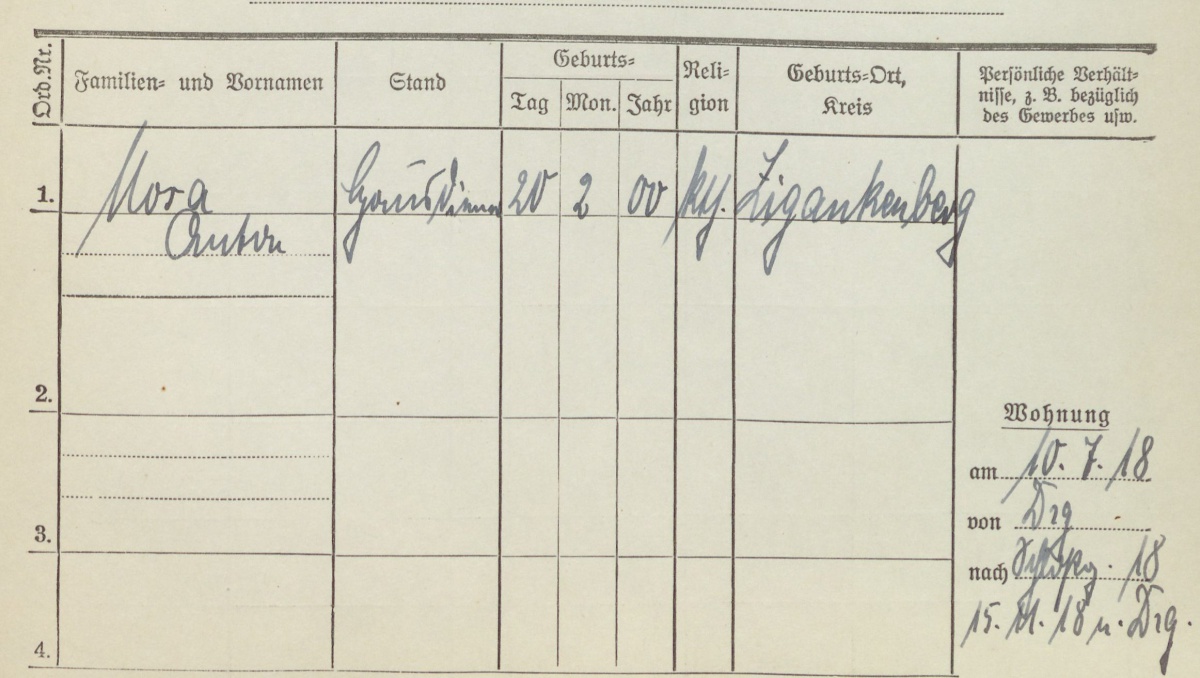 Ord.Nr.
Familien= und Vornamen
Stand
Geburts=
Tag
Mon.
Jahr
Reli-
gion
Geburts=Ort,
Kreis
Persönliche Verhält-
nisse, z. B. bezüglich
des Gewerbes usw.
1.
Mora
Anton
Hausdiener
20
2
00
kth.
Zigankenberg
2.
3.
4.
Wohnung
am 10. 7. 18
von Dzg
nach 18
15. 11. 18 n. Dzg.